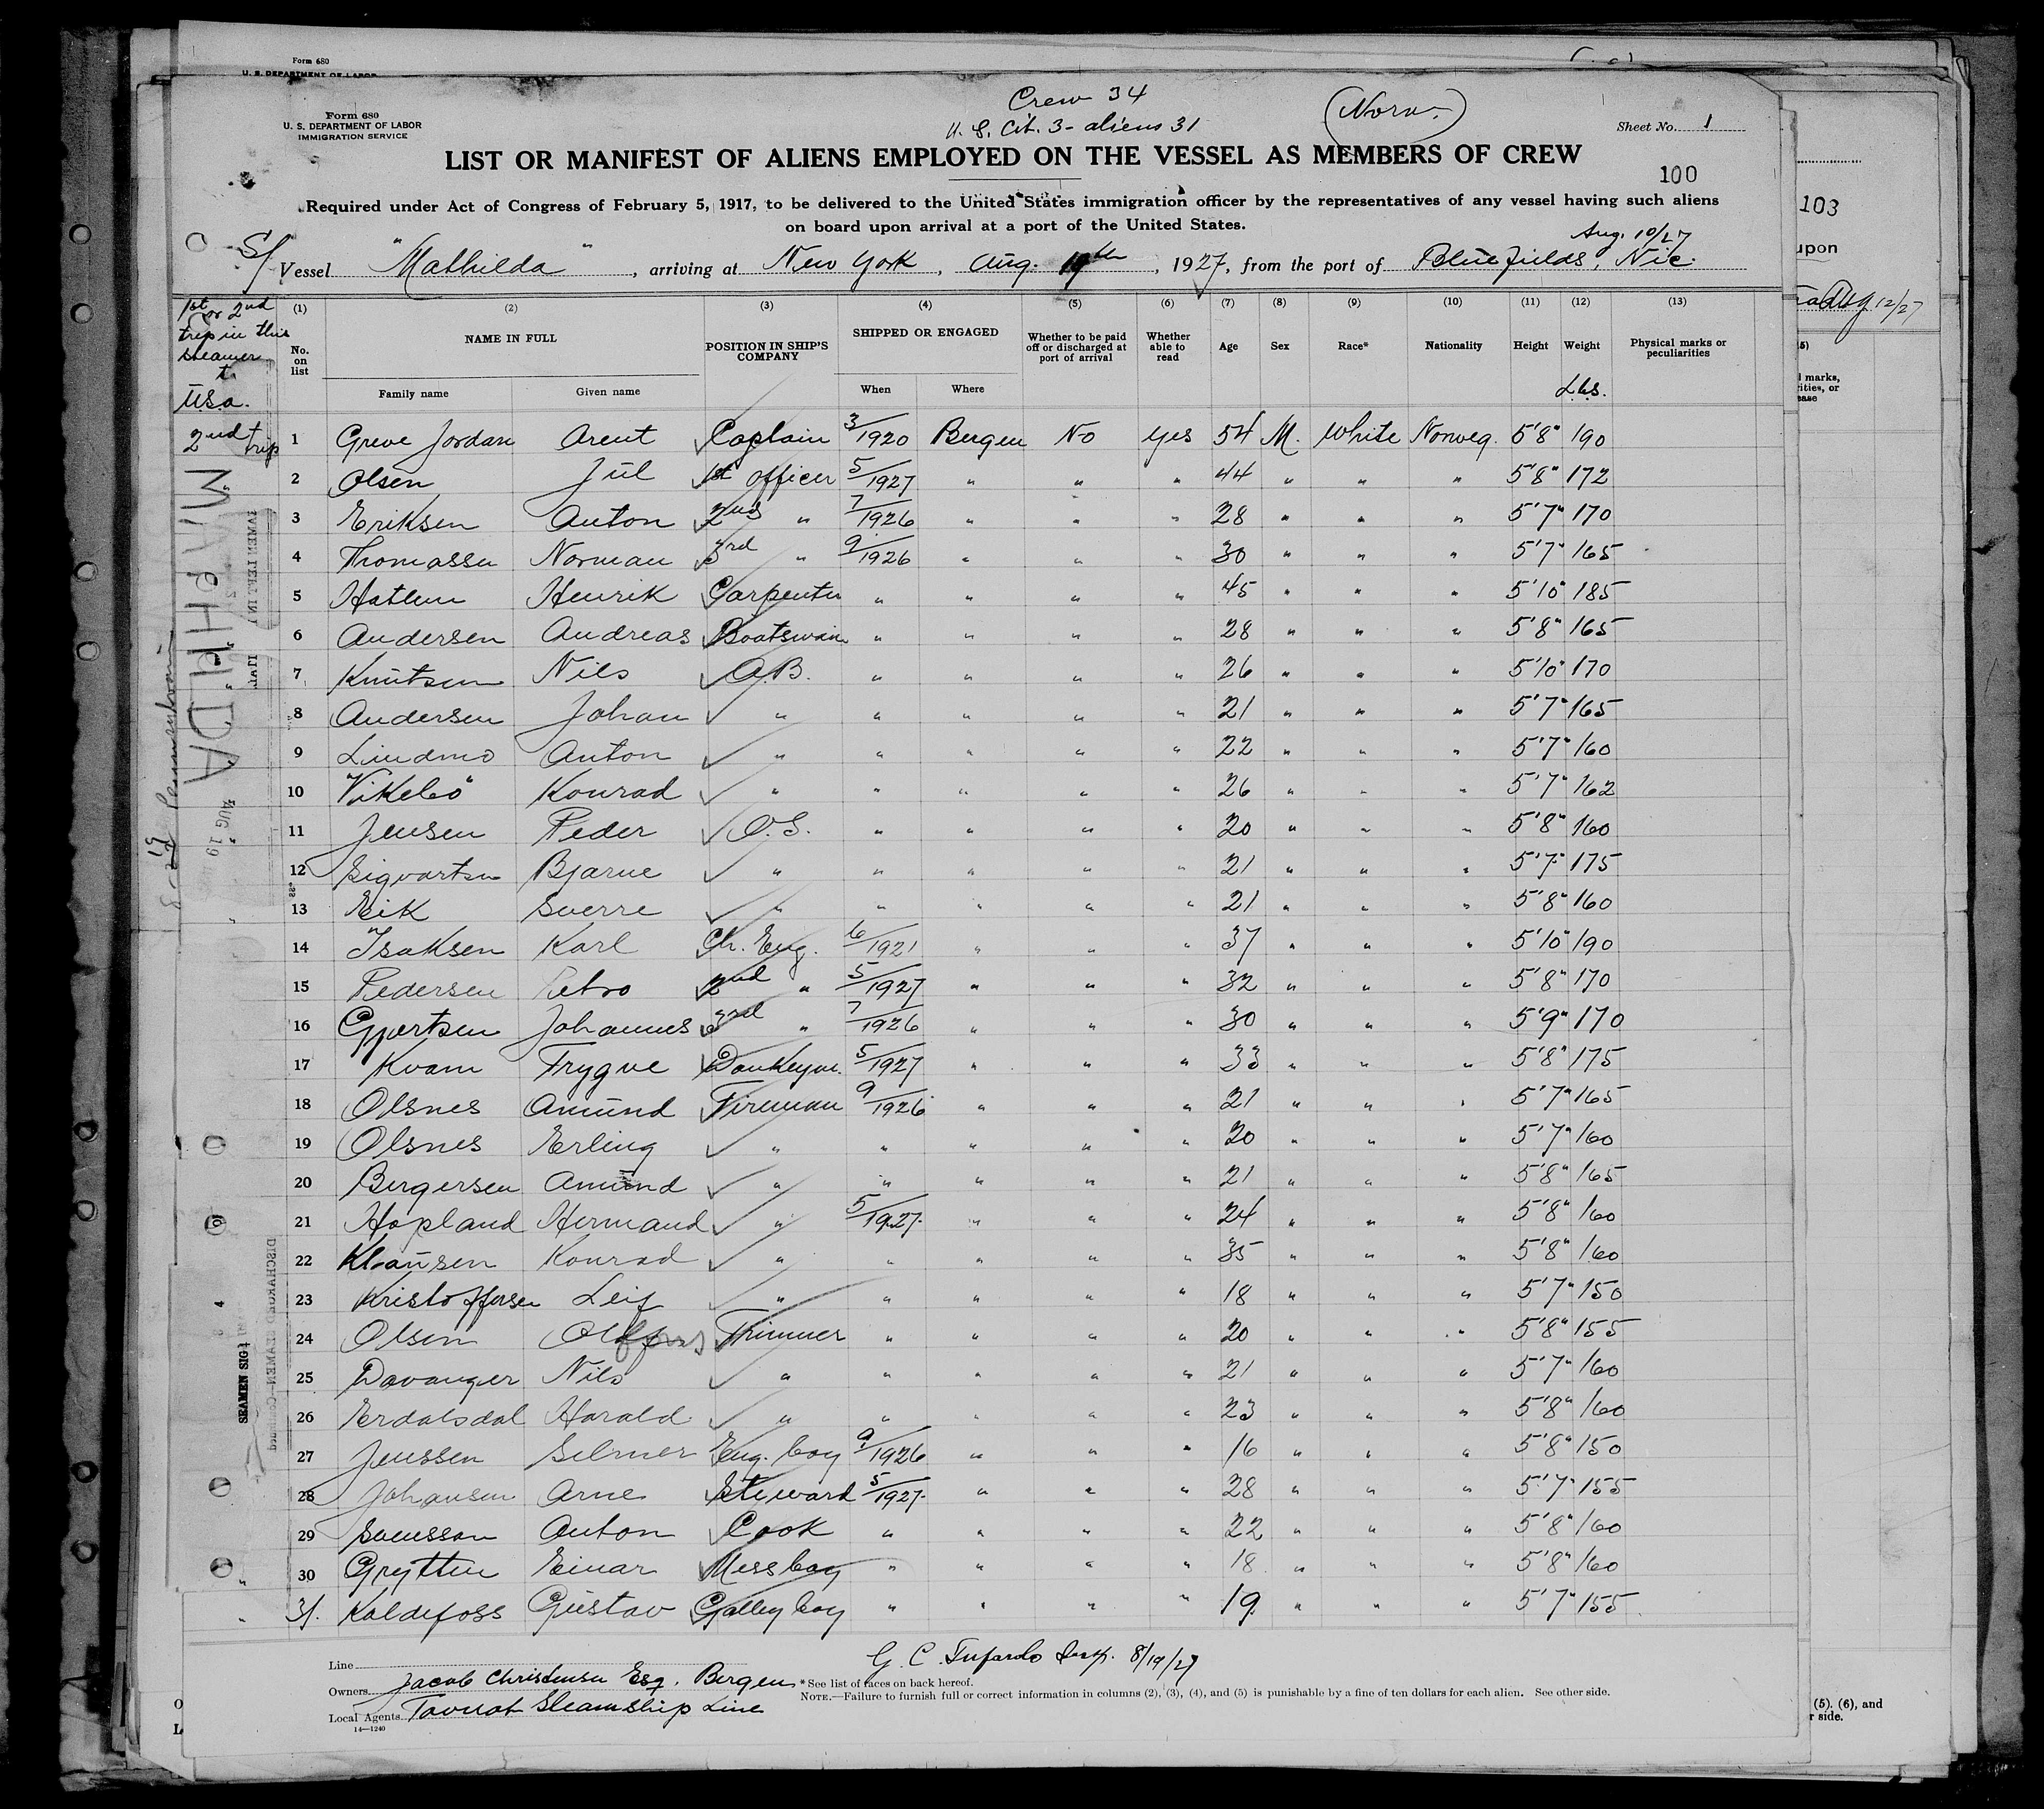 Form 680
U. S. DEPARTMENT OF LABOR
Form 680
U. S. DEPARTMENT OF LABOR
IMMIGRATION SERVICE
Crew 34
U. S. Cit. 3 - aliens 31
Norw.
Sheet No. 1
LIST OR MANIFEST OF ALIENS EMPLOYED ON THE VESSEL AS MEMBERS OF CREW
100
Required under Act of Congress of February 5, 1917, to be delivered to the United States immigration officer by the representatives of any vessel having such aliens
on board upon arrival at a port of the United States.
Aug. 10/27
S/ Vessel "Mathilda", arriving at New York, Aug. 19th, 1927, from the port of Bluefields, Nic.
103
upon
Aug 12/27
1st or 2nd trip in this steamer to U.S.a.
(1) (2) (3) (4) (5) (6) (7) (8) (9) (10) (11) (12) (13)
No. on list NAME IN FULL POSITION IN SHIP'S COMPANY SHIPPED OR ENGAGED Whether to be paid off or discharged at port of arrival Whether able to read Age Sex Race* Nationality Height Weight Physical marks or peculiarities
Family name Given name When Where Lbs.
2nd trip 1 Greve Jordan Arent Captain 3/1920 Bergen No yes 54 M. White Norweg. 5'8" 190
2 Olsen Jul 1st officer 5/1927 " " " 44 " " " 5'8" 172
3 Eriksen Anton 2nd " 7/1926 " " " 28 " " " 5'7" 170
4 Thomassen Norman 3rd " 9/1926 " " " 30 " " " 5'7" 165
5 Hatlem Henrik Carpenter " " " " 45 " " " 5'10" 185
6 Andersen Andreas Boatswain " " " " 28 " " " 5'8" 165
7 Knutsen Nils A.B. " " " " 26 " " " 5'10" 170
8 Andersen Johan " " " " " 21 " " " 5'7" 165
9 Lindmo Anton " " " " " 22 " " " 5'7" 160
10 Vikebö Konrad " " " " " 26 " " " 5'7" 162
11 Jensen Peder O.S. " " " " 20 " " " 5'8" 160
12 Sigvartsen Bjarne " " " " " 21 " " " 5'7" 175
13 Eik Sverre " " " " " 21 " " " 5'8" 160
14 Isaksen Karl Ch. Eng. 6/1921 " " " 37 " " " 5'10" 190
15 Pedersen Petro 2nd " 5/1927 " " " 32 " " " 5'8" 170
16 Gjertsen Johannes 3rd " 7/1926 " " " 30 " " " 5'9" 170
17 Kvam Trygve Donkeym. 5/1927 " " " 33 " " " 5'8" 175
18 Olsnes Amund Fireman 9/1926 " " " 21 " " " 5'7" 165
19 Olsnes Erling " " " " " 20 " " " 5'7" 160
20 Bergersen Amund " " " " " 21 " " " 5'8" 165
21 Hopland Hermand " 5/1927 " " " 24 " " " 5'8" 160
22 Klausen Konrad " " " " " 35 " " " 5'8" 160
23 Kristoffersen Leif " " " " " 18 " " " 5'7" 150
24 Olsen Trimmer " " " " 20 " " " 5'8" 155
25 Davanger Nils " " " " " 21 " " " 5'7" 160
26 Erdalsdal Harald " " " " " 23 " " " 5'8" 160
27 Jenssen Selmer Eng. boy 9/1926 " " " 16 " " " 5'8" 150
28 Johansen Arne Steward 5/1927 " " " 28 " " " 5'7" 155
29 Svensson Anton Cook " " " " 22 " " " 5'8" 160
30 Grytten Einar Messboy " " " " 18 " " " 5'8" 160
31. Kaldefoss Gustav Galley boy " " " " 19 " " " 5'7" 155
Line
G. C. Tufardo Insp. 8/19/27
Owners Jacob Christensen Esq. Bergen
*See list of races on back hereof.
NOTE.—Failure to furnish full or correct information in columns (2), (3), (4), and (5) is punishable by a fine of ten dollars for each alien. See other side.
Local Agents Steamship Line
14—1240
(5), (6), and
r side.